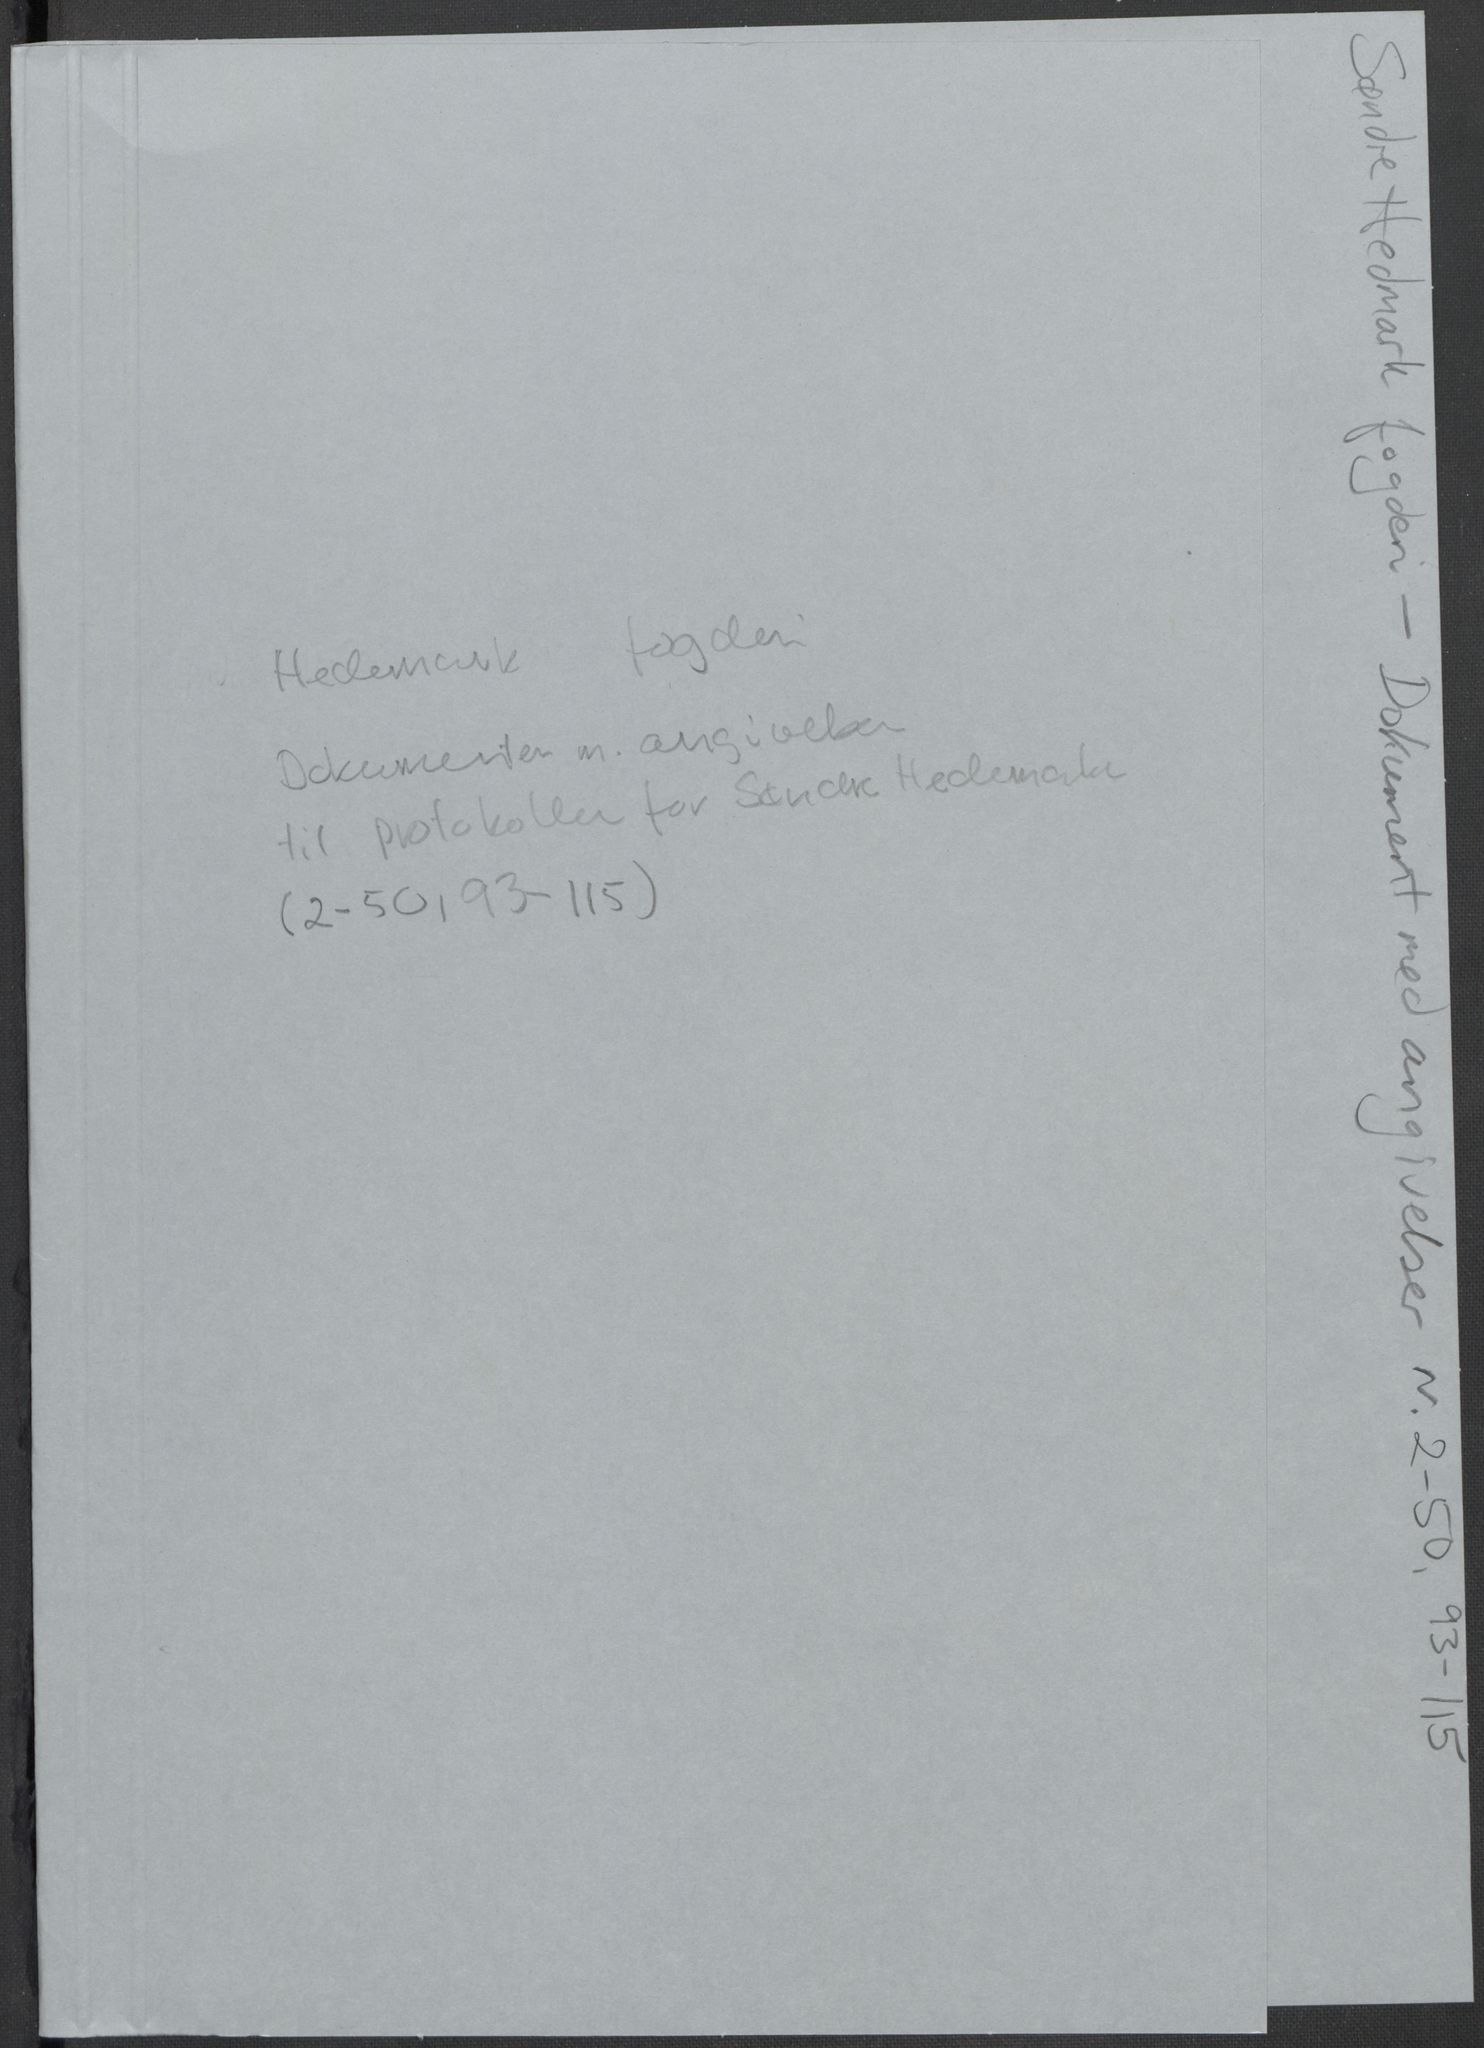 Hedemark fogderi
Dokumenter m. angivelser
til protokoller for Søndre Hedemark
(2-50, 93-115)
Søndre Hedmark fogderi - Dokument med angivelser nr. 2-50, 93-115